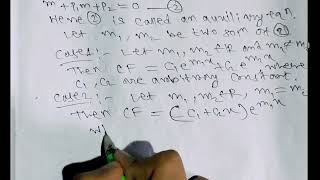 m² + P₁m + P₂ = 0 — ②
Here ② is called an auxiliary eqn.
Let m₁, m₂ be two roots of ②
Case1:- Let m₁, m₂ ∈ R and m₁ ≠ m₂
Then CF = C₁e^{m₁x} + C₂e^{m₂x} where
C₁, C₂ are arbitrary constant.
Case2:- Let m₁, m₂ ∈ R, m₁ = m₂
Then CF = (C₁ + C₂x) e^{m₁x}